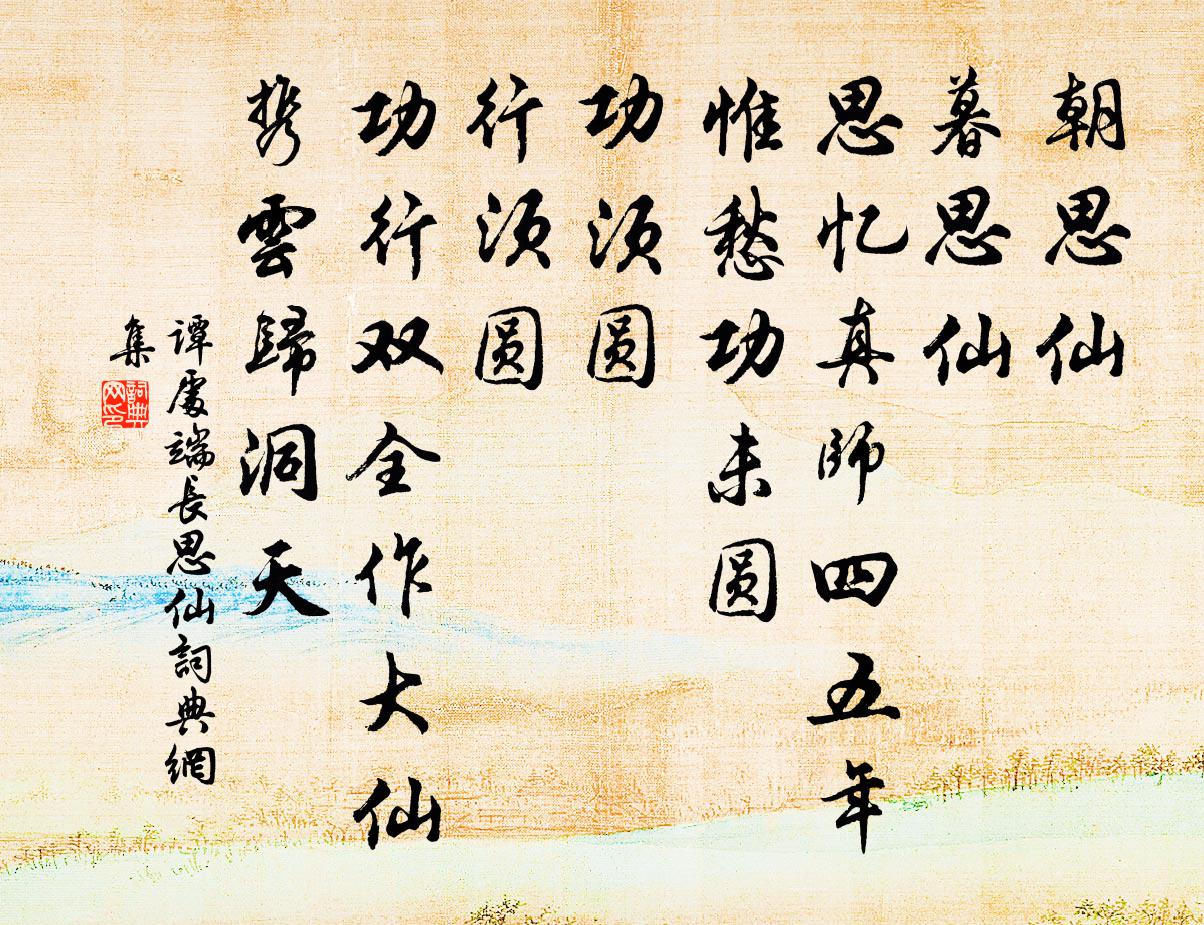 朝思仙
暮思仙
思忆真师四五年
惟愁功未圆
功须圆
行须圆
功行双全作大仙
携雲歸洞天
谭處端長思仙詞典網
集
詞典
网印